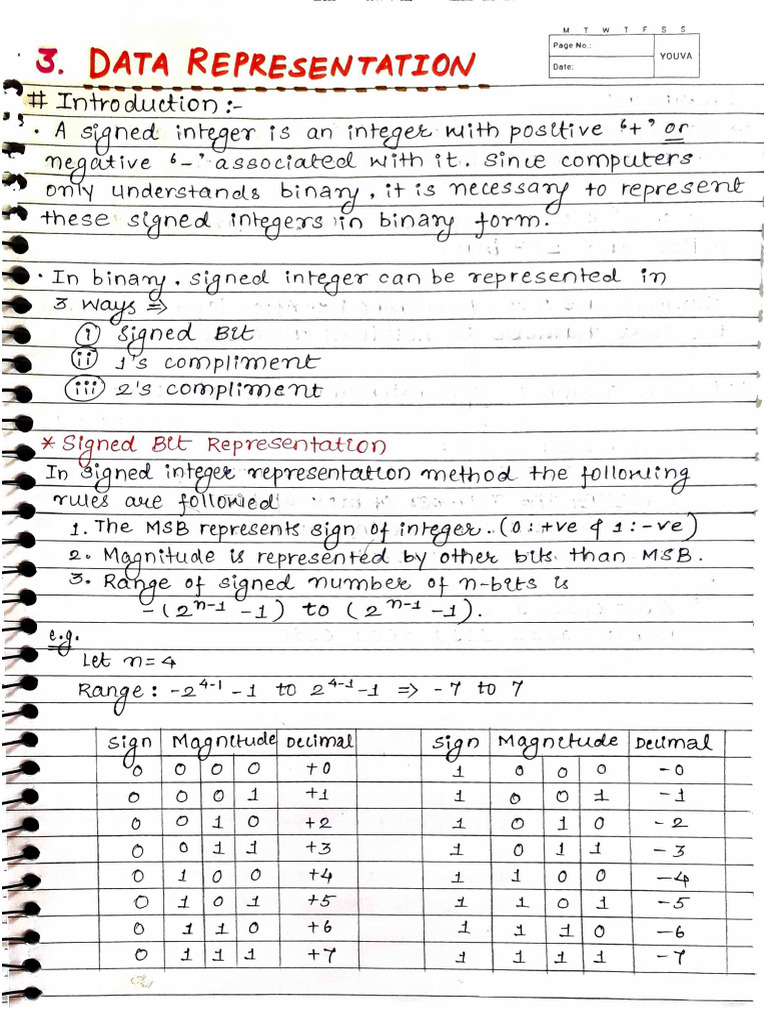 M T W T F S S
Page No.:
Date:
YOUVA
3. DATA REPRESENTATION
# Introduction :-
• A signed integer is an integer with positive ‘+’ or
negative ‘-’ associated with it. Since computers
only understands binary, it is necessary to represent
these signed integers in binary form.
• In binary, signed integer can be represented in
3 ways ⇒
(i) Signed Bit
(ii) 1's compliment
(iii) 2's compliment
* Signed Bit Representation
In signed integer representation method the following
rules are followed
1. The MSB represents sign of integer. (0: +ve & 1: -ve)
2. Magnitude is represented by other bits than MSB.
3. Range of signed number of n-bits is
-(2^n-1 -1) to (2^n-1 -1).
e.g.
Let n=4
Range : -2^4-1 -1 to 2^4-1 -1 ⇒ -7 to 7
Sign Magnitude Decimal Sign Magnitude Decimal
0 0 0 0 +0 1 0 0 0 -0
0 0 0 1 +1 1 0 0 1 -1
0 0 1 0 +2 1 0 1 0 -2
0 0 1 1 +3 1 0 1 1 -3
0 1 0 0 +4 1 1 0 0 -4
0 1 0 1 +5 1 1 0 1 -5
0 1 1 0 +6 1 1 1 0 -6
0 1 1 1 +7 1 1 1 1 -7